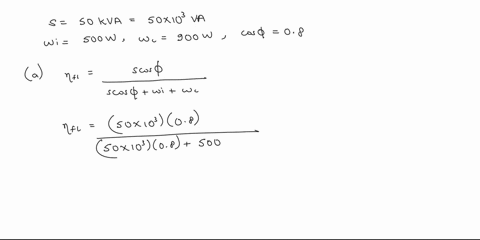 S = 50 kVA = 50×10³ VA
Wi = 500W, Wc = 900W, cosϕ = 0.8
(a) ηfl = Scosϕ / Scosϕ + Wi + Wc
ηfL = (50×10³)(0.8) / (50×10³)(0.8) + 500